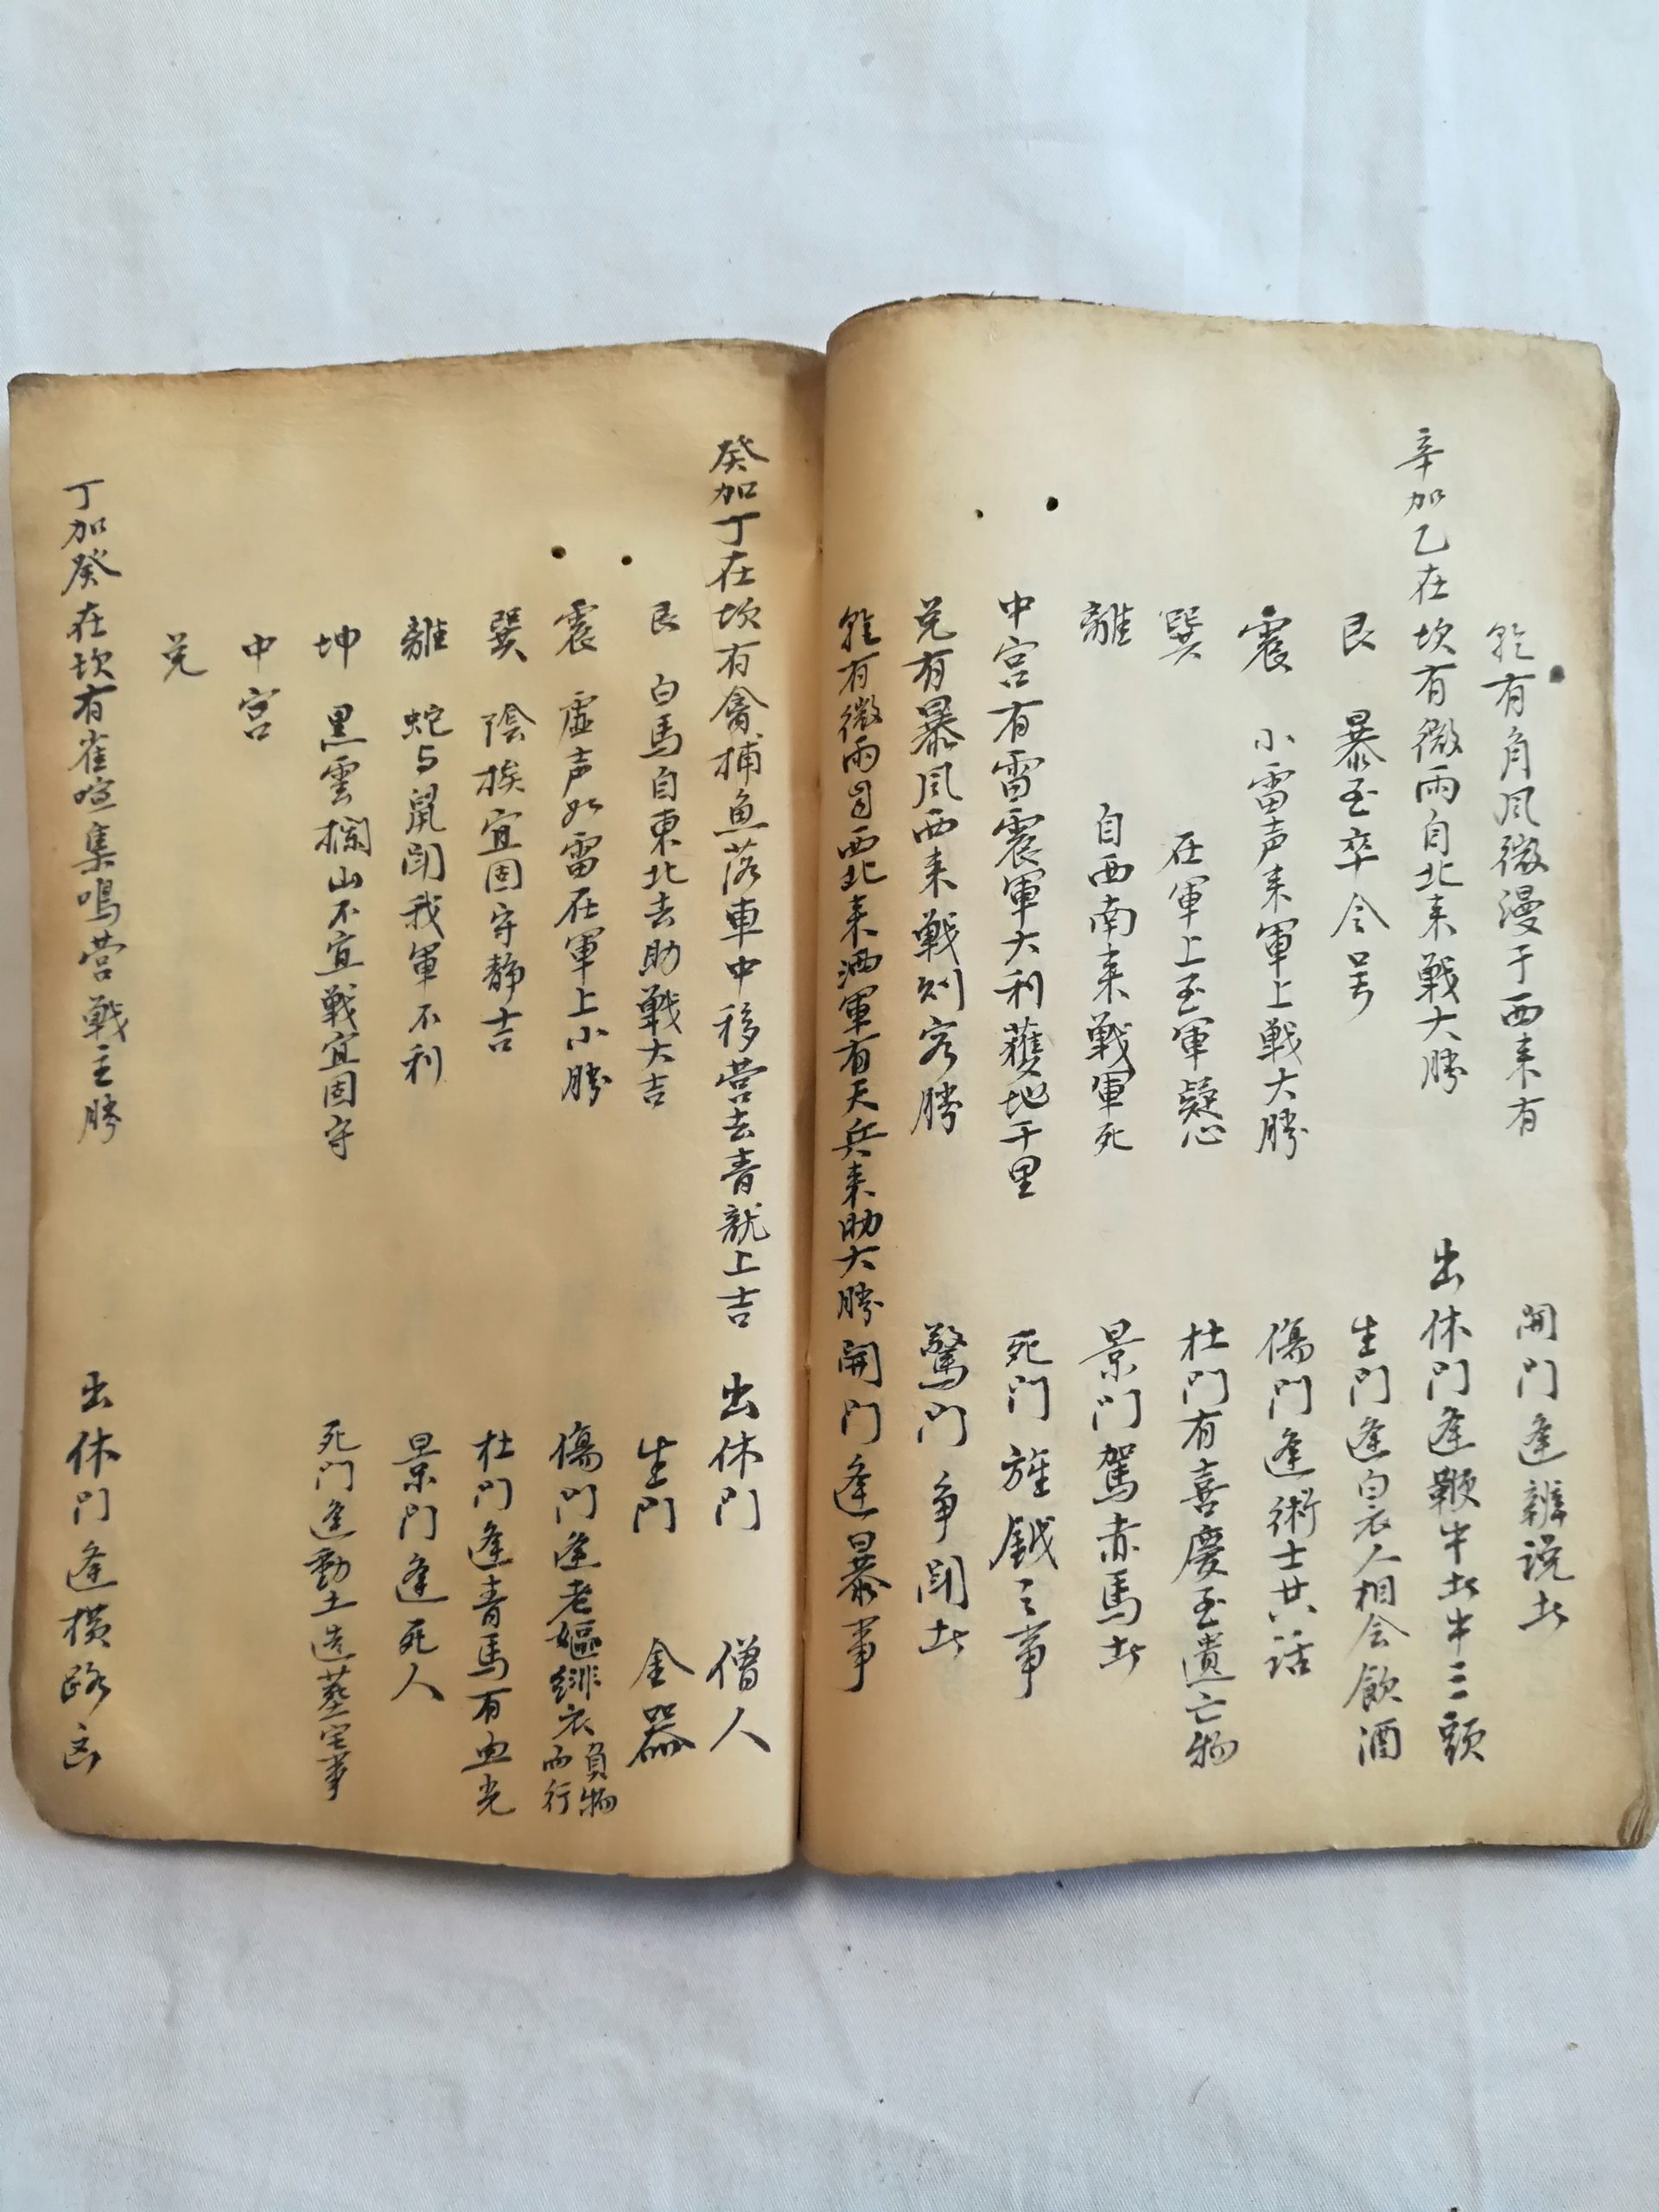 乾有角風微漫于西来有　開門逢辨说士
辛加乙在坎有微雨自北来戦大勝　出休門逢鞭牛牛三頭
艮　暴至卒令号　生門逢白衣人相会飲酒
震　小雷声来軍上戦大勝　傷門逢術士共話
巽　在軍上至軍疑心　杜門有喜慶至遺亡物
離　自西南来戦軍死　景門駕赤馬
中宮有雷震軍大利獲地千里　死門旌鉞之事
兑有暴风西来戦则客勝　驚門争闘
乾有微雨自西北来洒軍有天兵来助大勝　開門逢暴事
癸加丁在坎有禽捕鱼落車中移营去青龍上吉　出休門　僧人
艮　白馬自東北去助戦大吉　生門　金器
震　虚声如雷在軍上小勝　傷門逢老嫗緋衣負物而行
巽　陰埃宜固守静吉　杜門逢青馬有血光
離　蛇与鼠闘我軍不利　景門逢死人
坤　黑雲攔山不宜戦宜固守　死門逢動土造墓宅事
中宫
兑
丁加癸在坎有雀喧集鳴营戦主勝　出休門逢横路凶